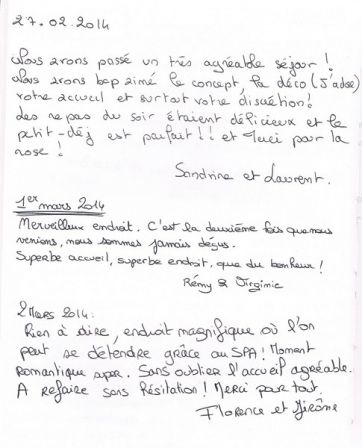 27.02.2014
Nous avons passé un très agréable séjour !
Nous avons bcp aimé le concept, la déco (J'adore)
votre accueil et surtout votre discrétion !
Les repas du soir étaient délicieux et le
petit-déj est parfait !! et Merci pour la
rose !
Sandrine et Laurent.
1er mars 2014
Merveilleux endroit. C'est la deuxième fois que nous
venions, nous sommes jamais déçus.
Superbe accueil, superbe endroit, que du bonheur !
Rémy & Virginie
2 Mars 2014 :
Rien à dire, endroit magnifique où l'on
peut se détendre grâce au SPA ! Moment
Romantique super. Sans oublier l'accueil agréable.
A refaire sans hésitation ! Merci pour tout.
Florence et Jérôme